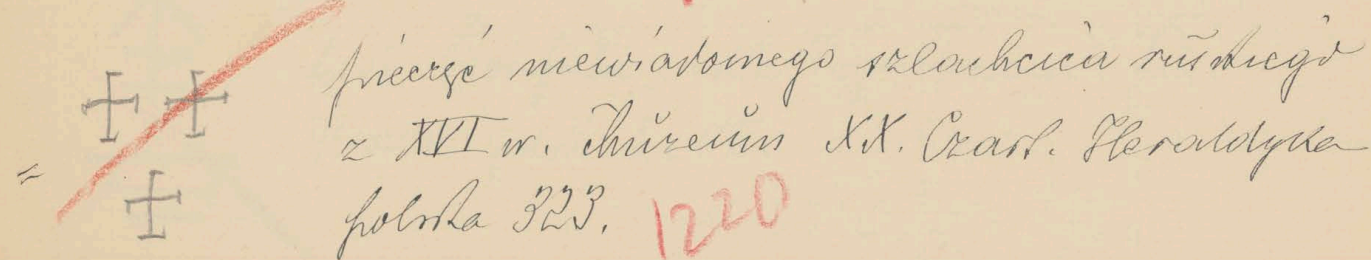 pieczęć niewiadomego szlachcica ruskiego
z XVI w. Muzeum XX. Czart. Heraldyka
polska 323.
1220